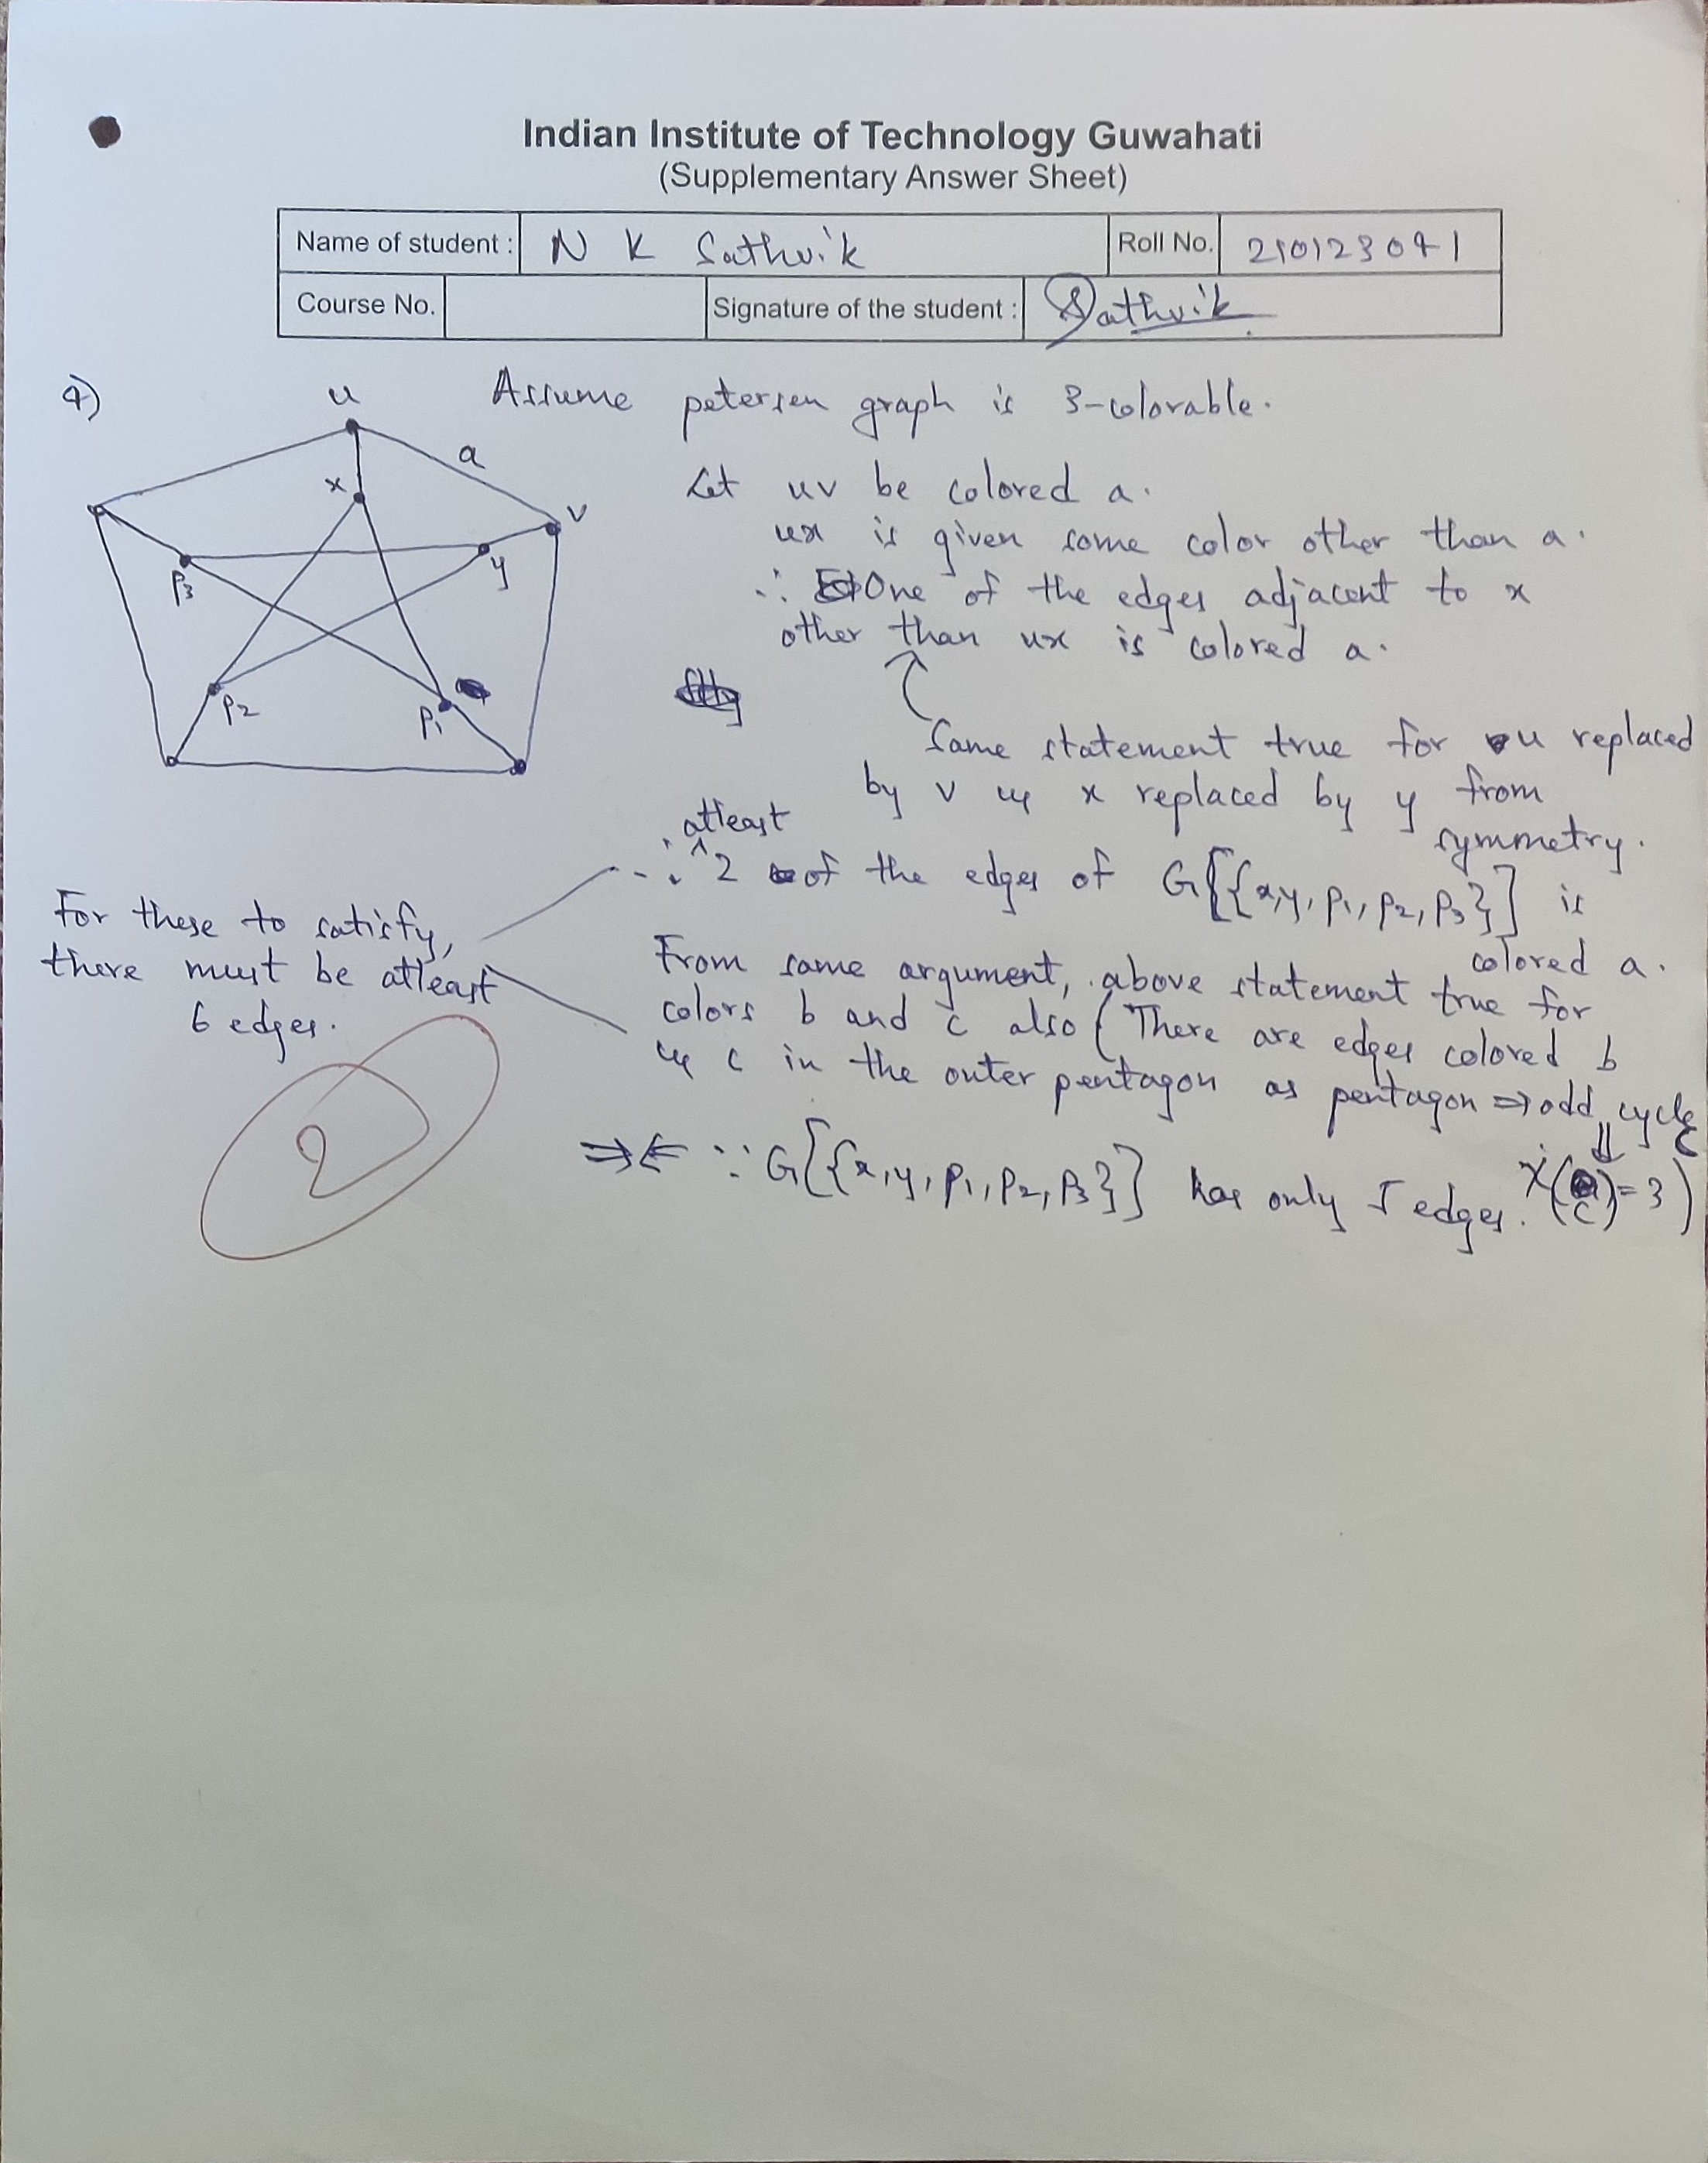 Indian Institute of Technology Guwahati
(Supplementary Answer Sheet)
Name of student : N K Sathvik Roll No. 210123041
Course No. Signature of the student : Sathvik
4)
u
a
x
v
y
P3
P2
P1
Assume petersen graph is 3-colorable.
Let uv be colored a.
ux is given some color other than a.
∴ One of the edges adjacent to x
other than ux is colored a.
Same statement true for u replaced
by v & x replaced by y from
symmetry.
atleast
∴ 2 of the edges of G[{x,y,p1,p2,p3}] is
colored a.
For these to satisfy,
there must be atleast
6 edges.
From same argument, above statement true for
colors b and c also (There are edges colored b
& c in the outer pentagon as pentagon ⇒ odd cycle
⇓
⇒⇐ ∵ G[{x,y,p1,p2,p3}] has only 5 edges. χ'(C)=3)
2